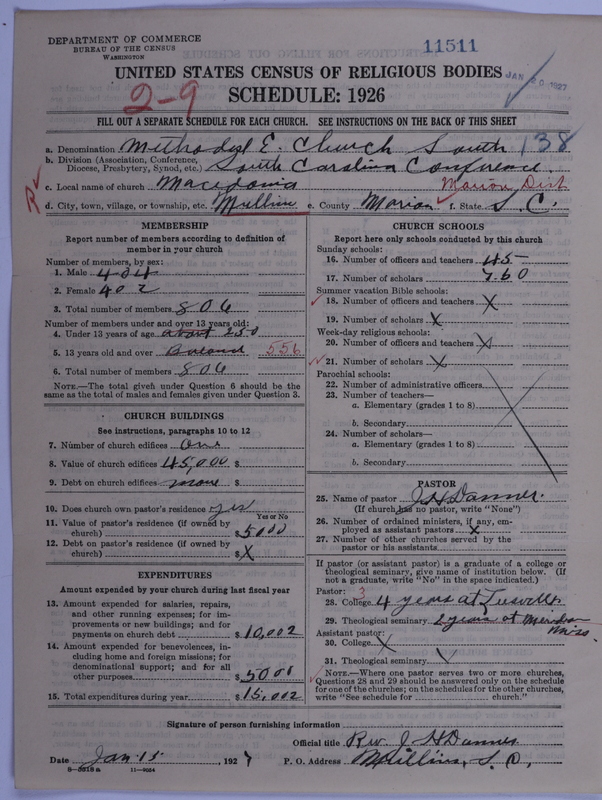 DEPARTMENT OF COMMERCE
BUREAU OF THE CENSUS
WASHINGTON
11511
JAN 20 1927
UNITED STATES CENSUS OF RELIGIOUS BODIES
SCHEDULE: 1926
2-9
FILL OUT A SEPARATE SCHEDULE FOR EACH CHURCH. SEE INSTRUCTIONS ON THE BACK OF THIS SHEET
a. Denomination Methodist E. Church South 138
b. Division (Association, Conference, Diocese, Presbytery, Synod, etc.) South Carolina Conference.
c. Local name of church Macedonia Marion Dist
d. City, town, village, or township, etc. Mullins e. County Marion f. State S. C.
MEMBERSHIP
Report number of members according to definition of member in your church
Number of members, by sex:
1. Male 404
2. Female 402
3. Total number of members 806
Number of members under and over 13 years old:
4. Under 13 years of age about 250
5. 13 years old and over Balance 556
6. Total number of members 806
NOTE.—The total given under Question 6 should be the same as the total of males and females given under Question 3.
CHURCH BUILDINGS
See instructions, paragraphs 10 to 12
7. Number of church edifices One
8. Value of church edifices 45,000 $
9. Debt on church edifices none $
10. Does church own pastor's residence yes
Yes or No
11. Value of pastor's residence (if owned by church) $ 5000
12. Debt on pastor's residence (if owned by church) $ X
EXPENDITURES
Amount expended by your church during last fiscal year
13. Amount expended for salaries, repairs, and other running expenses; for improvements or new buildings; and for payments on church debt $ 10,002
14. Amount expended for benevolences, including home and foreign missions; for denominational support; and for all other purposes $ 5000
15. Total expenditures during year $ 15,002
CHURCH SCHOOLS
Report here only schools conducted by this church
Sunday schools:
16. Number of officers and teachers 45
17. Number of scholars 760
Summer vacation Bible schools:
18. Number of officers and teachers X
19. Number of scholars X
Week-day religious schools:
20. Number of officers and teachers X
21. Number of scholars X
Parochial schools:
22. Number of administrative officers
23. Number of teachers—
a. Elementary (grades 1 to 8)
b. Secondary
24. Number of scholars—
a. Elementary (grades 1 to 8)
b. Secondary
PASTOR
25. Name of pastor J H Danner.
(If church has no pastor, write "None")
26. Number of ordained ministers, if any, employed as assistant pastors X
27. Number of other churches served by the pastor or his assistants
If pastor (or assistant pastor) is a graduate of a college or theological seminary, give name of institution below. (If not a graduate, write "No" in the space indicated.)
Pastor: 3
28. College 4 years at
29. Theological seminary 2 years at Meridian Miss.
Assistant pastor:
30. College X
31. Theological seminary
NOTE.—Where one pastor serves two or more churches, Questions 28 and 29 should be answered only on the schedule for one of the churches; on the schedules for the other churches, write "See schedule for church."
Signature of person furnishing information
Official title Rev. J H Danner
Date Jan. 15, 1927 P. O. Address Mullins, S. C.
8-5918a 11-9054